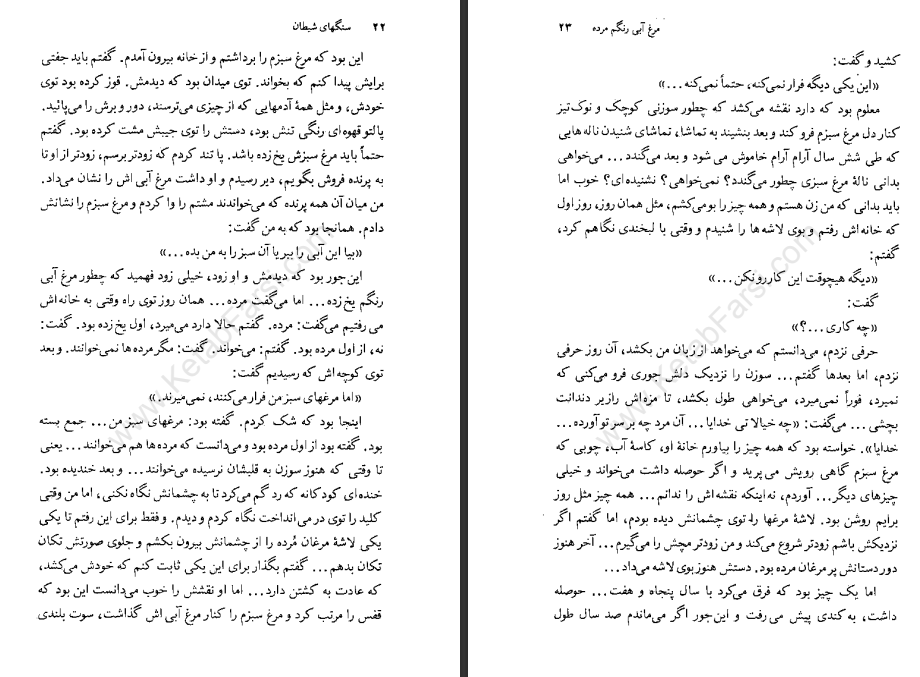 ۲۲ سنگهای شیطان
این بود که مرغ سبزم را برداشتم و از خانه بیرون آمدم. گفتم باید جفتی
برایش پیدا کنم که بخواند. توی میدان بود که دیدمش. قوز کرده بود توی
خودش، و مثل همۀ آدمهایی که از چیزی می‌ترسند، دور و برش را می‌پائید.
پالتو قهوه‌ای رنگی تنش بود، دستش را توی جیبش مشت کرده بود. گفتم
حتماً باید مرغ سبزش یخ زده باشد. پا تند کردم که زودتر برسم، زودتر از او تا
به پرنده فروش بگویم، دیر رسیدم و او داشت مرغ آبی اش را نشان می‌داد.
من میان آن همه پرنده که می‌خواندند مشتم را وا کردم و مرغ سبزم را نشانش
دادم. همانجا بود که به من گفت:
«بیا این آبی را ببر یا آن سبز را به من بده...»
این‌جور بود که دیدمش و او زود، خیلی زود فهمید که چطور مرغ آبی
رنگم یخ زده... اما می‌گفت مرده... همان روز توی راه وقتی به خانه اش
می رفتیم می‌گفت: مرده. گفتم حالا دارد می‌میرد، اول یخ زده بود. گفت:
نه، از اول مرده بود. گفتم: می‌خواند. گفت: مگر مرده ها نمی‌خوانند. و بعد
توی کوچه اش که رسیدیم گفت:
«اما مرغهای سبز من فرار می‌کنند، نمی‌میرند.»
اینجا بود که شک کردم. گفته بود: مرغهای سبز من... جمع بسته
بود. گفته بود از اول مرده بود و می‌دانست که مرده ها هم می‌خوانند... یعنی
تا وقتی که هنوز سوزن به قلبشان نرسیده می‌خوانند... و بعد خندیده بود.
خنده ای کودکانه که رد گم می‌کرد تا به چشمانش نگاه نکنی، اما من وقتی
کلید را توی در می‌انداخت نگاه کردم و دیدم. و فقط برای این رفتم تا یکی
یکی لاشۀ مرغان مُرده را از چشمانش بیرون بکشم و جلوی صورتش تکان
تکان بدهم... گفتم بگذار برای این یکی ثابت کنم که خودش می‌کشد،
که عادت به کشتن دارد... اما او نقشش را خوب می‌دانست این بود که
قفس را مرتب کرد و مرغ سبزم را کنار مرغ آبی اش گذاشت، سوت بلندی
مرغ آبی رنگم مرده ۲۳
کشید و گفت:
«این یکی دیگه فرار نمی‌کنه، حتماً نمی‌کنه...»
معلوم بود که دارد نقشه می‌کشد که چطور سوزنی کوچک و نوک‌تیز
کنار دل مرغ سبزم فرو کند و بعد بنشیند به تماشا، تماشای شنیدن ناله هایی
که طی شش سال آرام آرام خاموش می شود و بعد می‌گندد... می‌خواهی
بدانی نالۀ مرغ سبزی چطور می‌گندد؟ نمی‌خواهی؟ نشنیده ای؟ خوب اما
باید بدانی که من زن هستم و همه چیز را بو می‌کشم، مثل همان روز، روز اول
که خانه اش رفتم و بوی لاشه ها را شنیدم و وقتی با لبخندی نگاهم کرد،
گفتم:
«دیگه هیچوقت این کاررو نکن...»
گفت:
«چه کاری...؟»
حرفی نزدم، می‌دانستم که می‌خواهد از زبان من بکشد، آن روز حرفی
نزدم، اما بعدها گفتم... سوزن را نزدیک دلش جوری فرو می‌کنی که
نمیرد، فوراً نمی‌میرد، می‌خواهی طول بکشد، تا مزه‌اش رازیر دندانت
بچشی... می‌گفت: «چه خیالا تی خدایا... آن مرد چه بر سر تو آورده...
خدایا». خواسته بود که همه چیز را بیاورم خانۀ او، کاسۀ آب، چوبی که
مرغ سبزم گاهی رویش می پرید و اگر حوصله داشت می‌خواند و خیلی
چیزهای دیگر... آوردم، نه اینکه نقشه اش را ندانم... همه چیز مثل روز
برایم روشن بود. لاشۀ مرغها را توی چشمانش دیده بودم، اما گفتم اگر
نزدیکش باشم زودتر شروع می‌کند و من زودتر مچش را می‌گیرم... آخر هنوز
دور دستانش پر مرغان مرده بود. دستش هنوز بوی لاشه می‌داد...
اما یک چیز بود که فرق می‌کرد با سال پنجاه و هفت... حوصله
داشت، به کندی پیش می رفت و این‌جور اگر می‌ماندم صد سال طول
www.KetabFarsi.com
www.KetabFarsi.com